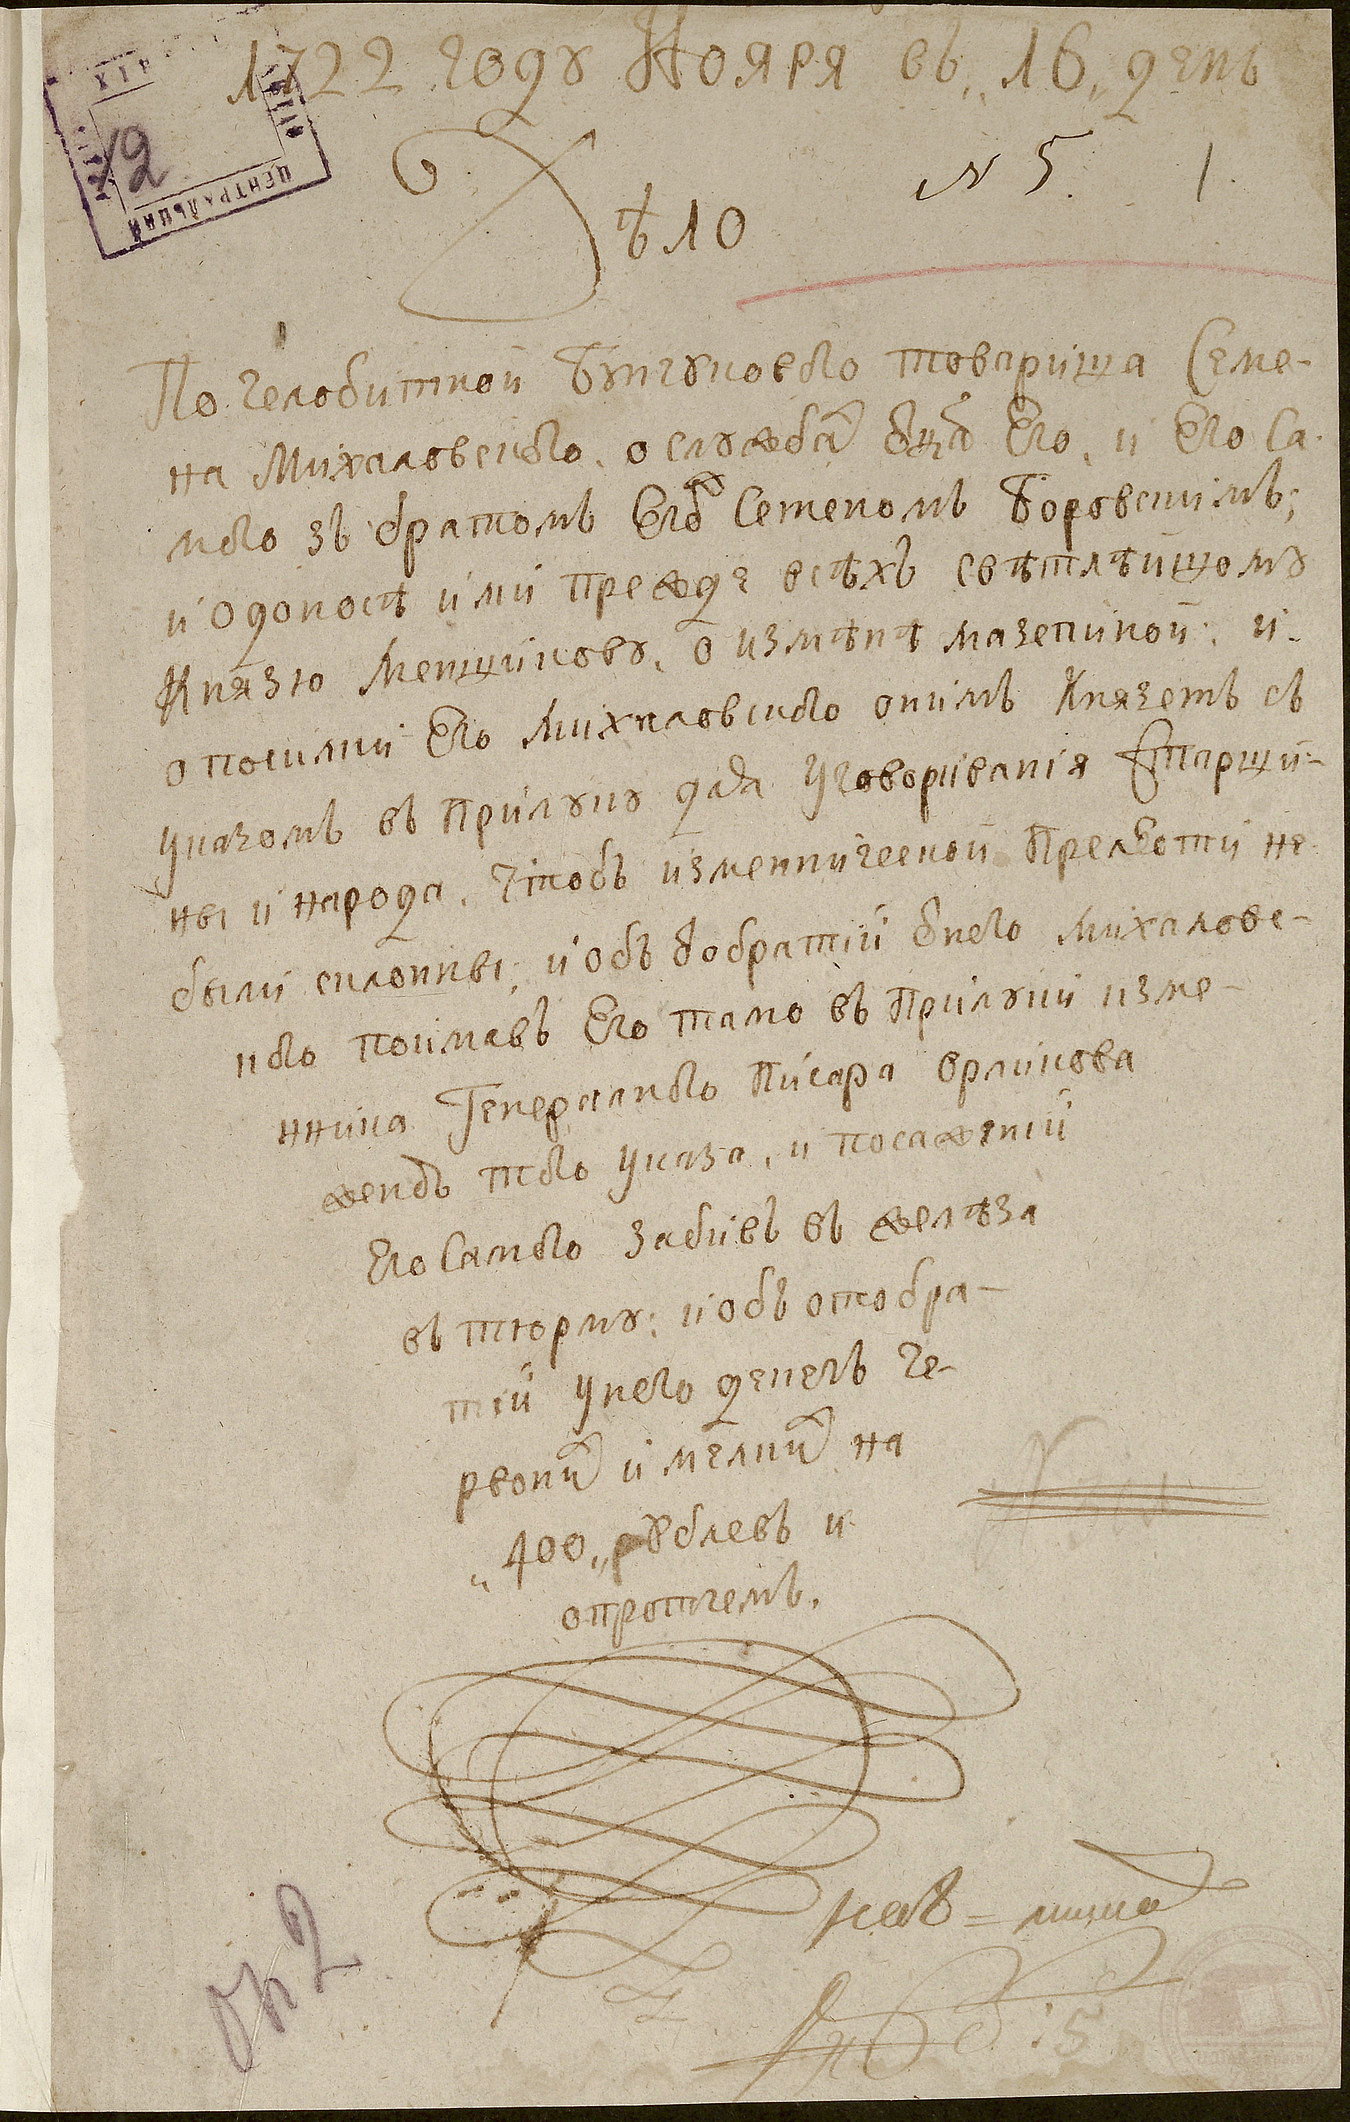 1722 году Ноября въ „16„ день
N 5. 1.
Дѣло
По челобитной Бунчукового товариша Семе-
на Михаловского, о службах отца Его, и Его Са-
мого зъ братомъ Его Семеномъ Боровскимъ;
и о доносѣ ими прежде всѣхъ свѣтлѣйшому
Князю Меншикову, о измѣнѣ мазепиной; и
о посилки Его Михаловского онимъ Княземъ съ
указомъ въ Прилуку для уговоривания Старши-
ны и народа, чтобъ изменнической прелести не
были склонны; и объ отобратии от него Михаловс-
кого поимавъ Его тамо въ Прилуки изме-
нника Генералного Писара Орликова
женою того указа, и посажении
Его Самого забивъ въ желѣза
въ тюрму; и объ отобра-
тии у него денегъ че-
рвоних и мелких на
„400„ рублевъ и
о протчемъ.
оп 2
ЦЕНТРАЛЬНИЙ